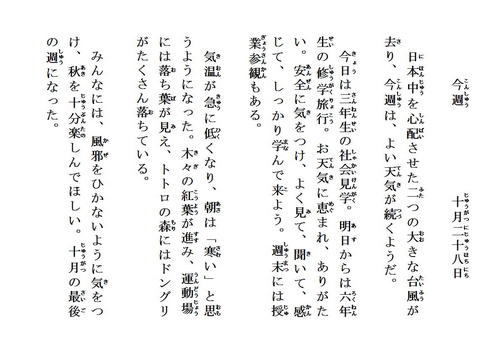 今週　　　　十月二十八日
日本中を心配させた二つの大きな台風が
去り、今週は、よい天気が続くようだ。
今日は三年生の社会見学。明日からは六年
生の修学旅行。お天気に恵まれ、ありがた
い。安全に気をつけ、よく見て、聞いて、感
じて、しっかり学んで来よう。週末には授
業参観もある。
気温が急に低くなり、朝は「寒い」と思
うようになった。木々の紅葉が進み、運動場
には落ち葉が見え、トトロの森にはドングリ
がたくさん落ちている。
みんなには、風邪をひかないように気をつ
け、秋を十分楽しんでほしい。十月の最後
の週になった。